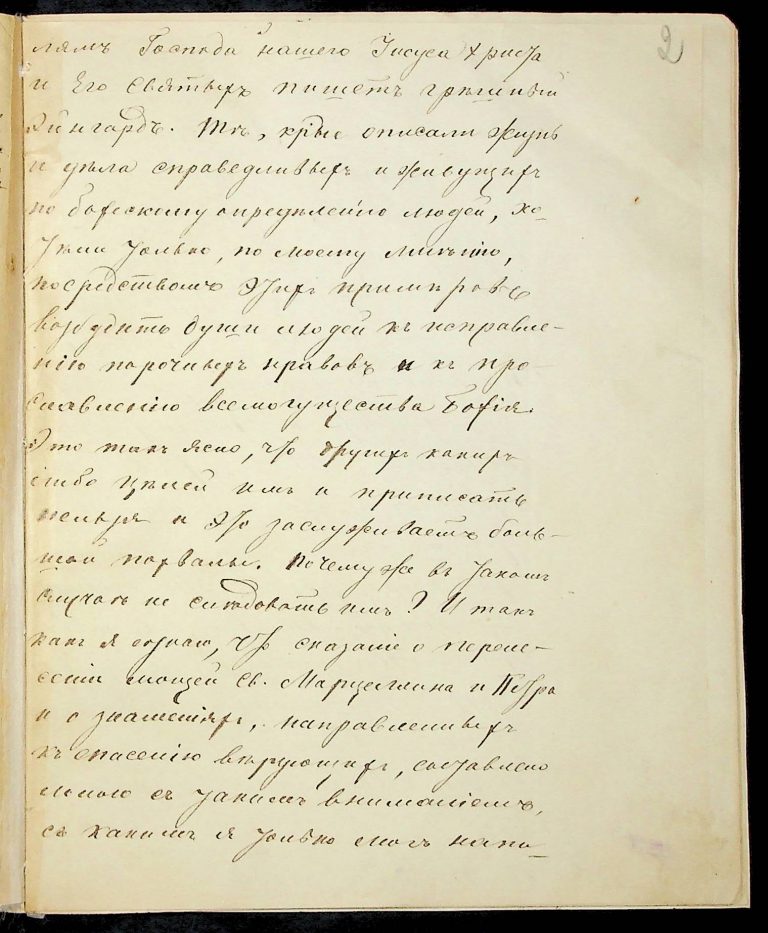 2
лямъ Господа нашего Іисуса Христа
и Его святыхъ пишетъ грѣшный
Эйнгардъ. Тѣ, крые описали жизнь
и дѣла справедливыхъ и живущихъ
по божескому опредѣленію людей, хо-
тѣли только, по моему мнѣнію,
посредствомъ этихъ примѣровъ
возбудить души людей къ исправле-
нію порочныхъ нравовъ и къ про-
славленію всемогущества Божія.
Это такъ ясно, что другихъ какихъ
либо цѣлей имъ и приписать
нельзя и это заслуживаетъ боль-
шой похвалы. Почему же въ такомъ
случаѣ не слѣдовать имъ? И такъ
какъ я сознаю, что сказаніе о перене-
сеніи мощей Св. Марцеллина и Петра
и о знаменіяхъ, направленныхъ
къ спасенію вѣрующихъ, составлено
мною съ такимъ вниманіемъ,
съ какимъ я только могъ напи-